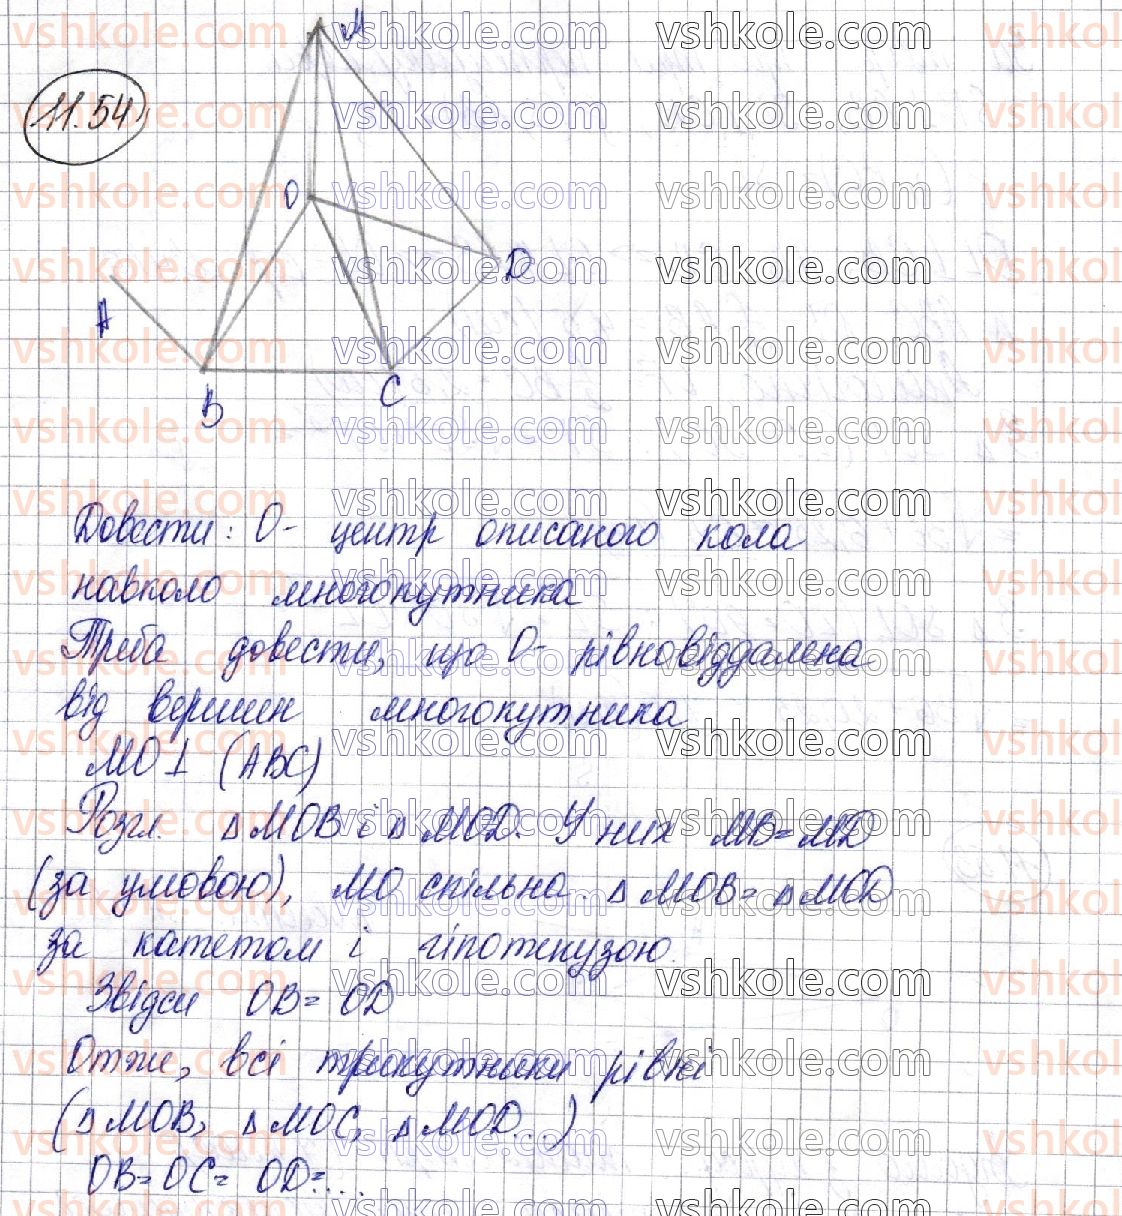 11.54
M
O
D
A
B
C
Довести: О - центр описаного кола
навколо многокутника
Треба довести, що О - рівновіддалена
від вершин многокутника
МО ⊥ (АВС)
Розгл. △ МОВ і △ МОD. У них МВ = МD
(за умовою), МО спільна. △ МОВ = △ МОD
за катетом і гіпотенузою.
Звідси ОВ = ОD
Отже, всі трикутники рівні
(△ МОВ, △ МОС, △ МОD...)
ОВ = ОС = ОD = ...
vshkole.com